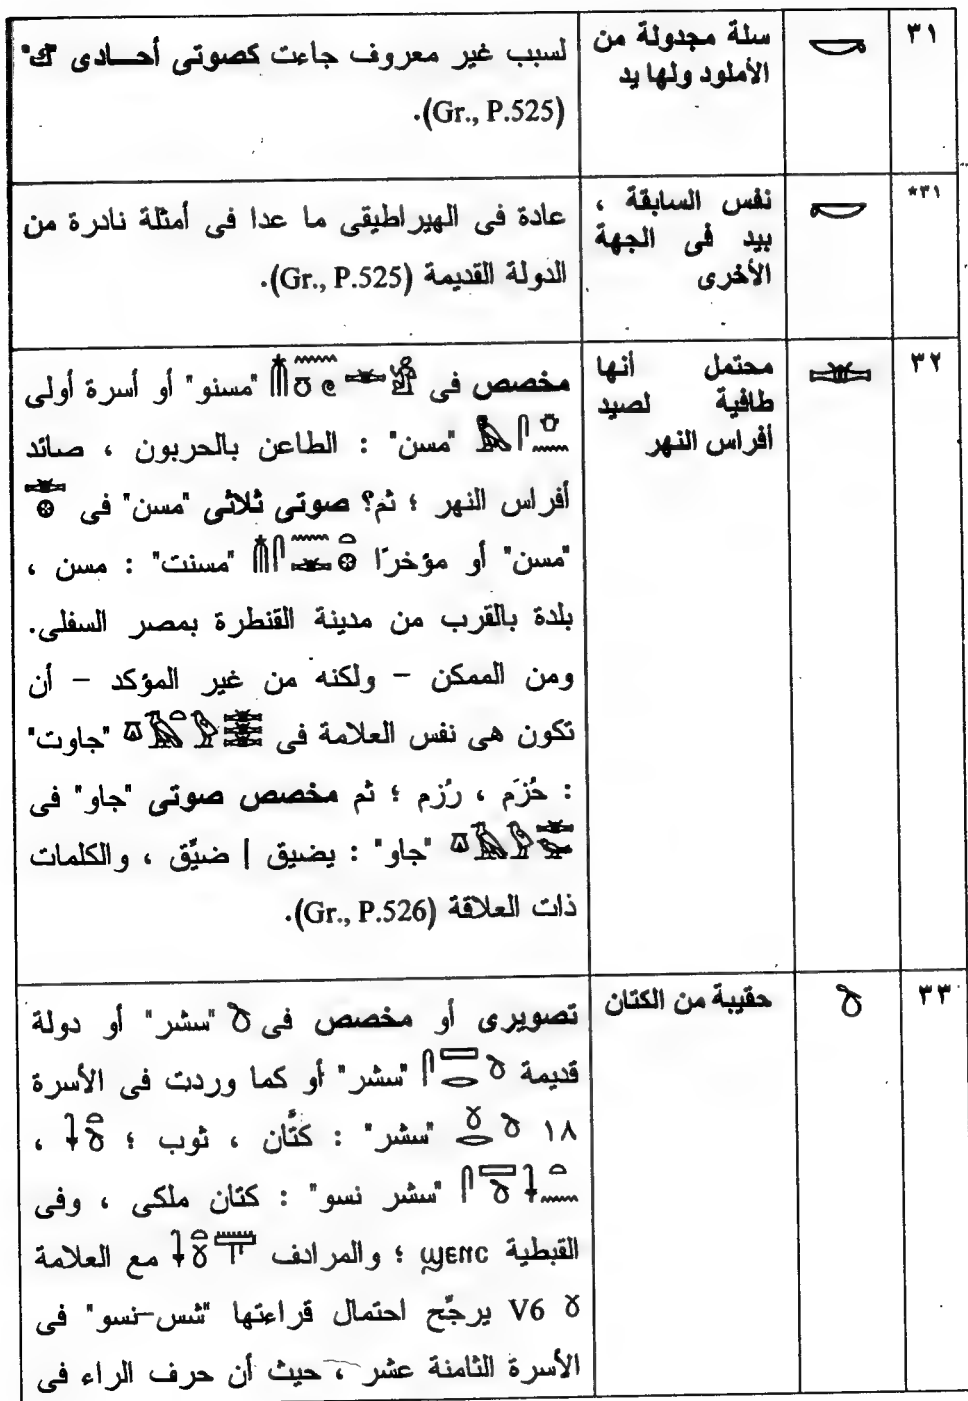 ٣١
سلة مجدولة من
الأملود ولها يد
لسبب غير معروف جاءت كصوتى أحـــادى "ك"
(Gr., P.525).
٣١*
نفس السابقة ،
بيد فى الجهة
الأخرى
عادة فى الهيراطيقى ما عدا فى أمثلة نادرة من
الدولة القديمة (Gr., P.525).
٣٢
محتمل أنها
طافية لصيد
أفراس النهر
مخصص فى "مسنو" أو أسرة أولى
"مسن" : الطاعن بالحربون ، صائد
أفراس النهر ؛ ثم؟ صوتى ثلاثى "مسن" فى
"مسن" أو مؤخرًا "مسنت" : مسن ،
بلدة بالقرب من مدينة القنطرة بمصر السفلى.
ومن الممكن – ولكنه من غير المؤكد – أن
تكون هى نفس العلامة فى "جاوت"
: حُزَم ، رُزم ؛ ثم مخصص صوتى "جاو" فى
"جاو" : يضيق | ضيَّق ، والكلمات
ذات العلاقة (Gr., P.526).
٣٣
حقيبة من الكتان
تصويرى أو مخصص فى "سشر" أو دولة
قديمة "سشر" أو كما وردت فى الأسرة
١٨ "سشر" : كتَّان ، ثوب ؛ ،
"سشر نسو" : كتان ملكى ، وفى
القبطية ϣⲉⲛⲥ ؛ والمرادف مع العلامة
V6 يرجَّح احتمال قراءتها "شس-نسو" فى
الأسرة الثامنة عشر ، حيث أن حرف الراء فى